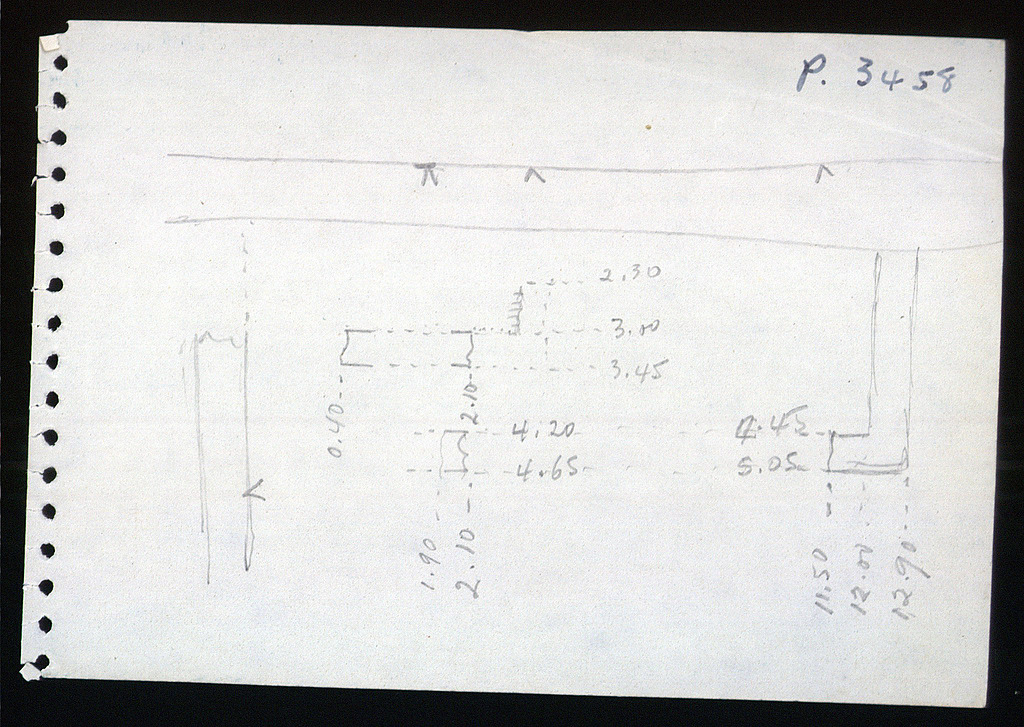 P. 3458
2.30
3.00
3.45
0.40
2.10
4.20
4.45
4.65
5.05
1.90
2.10
11.50
12.00
12.90